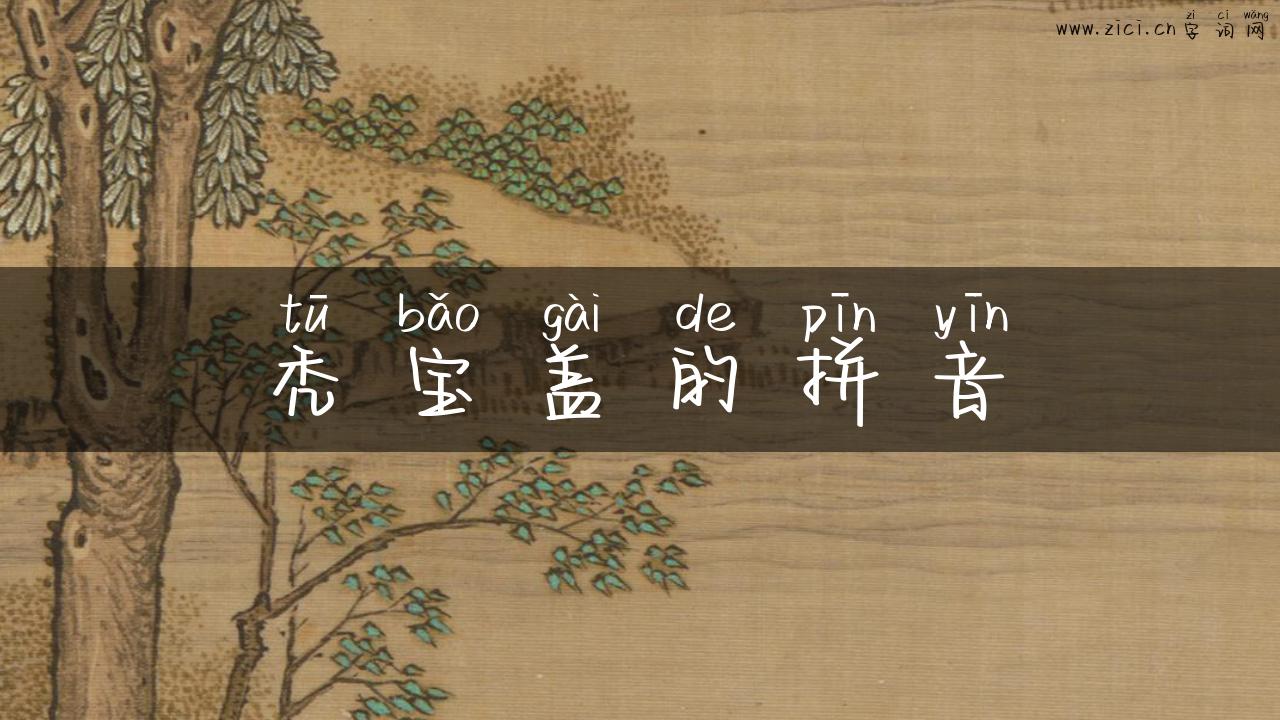 zì cí wǎng
www.zici.cn 字词网
tū bǎo gài de pīn yīn
秃宝盖的拼音